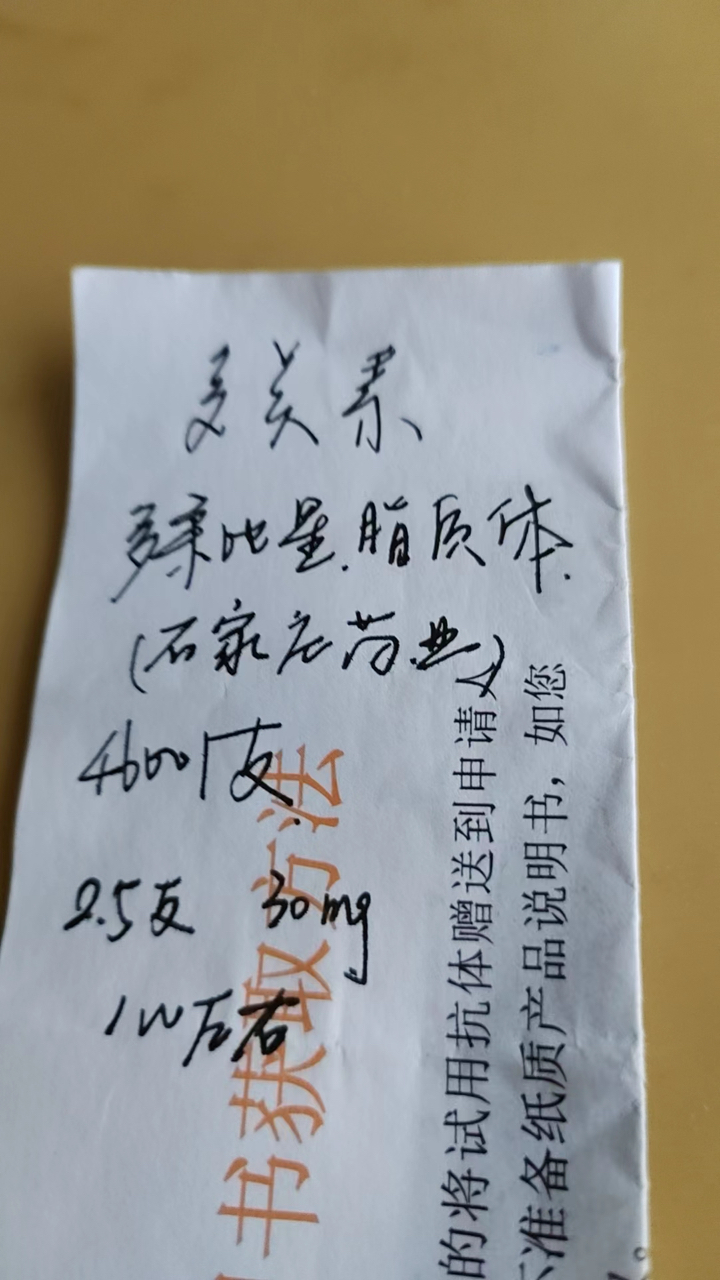 多美素
多柔比星脂质体
(石家庄药业)
4600/支
2.5支 30mg
1W左右
书获取方法
的将试用抗体赠送到申请人
准备纸质产品说明书，如您